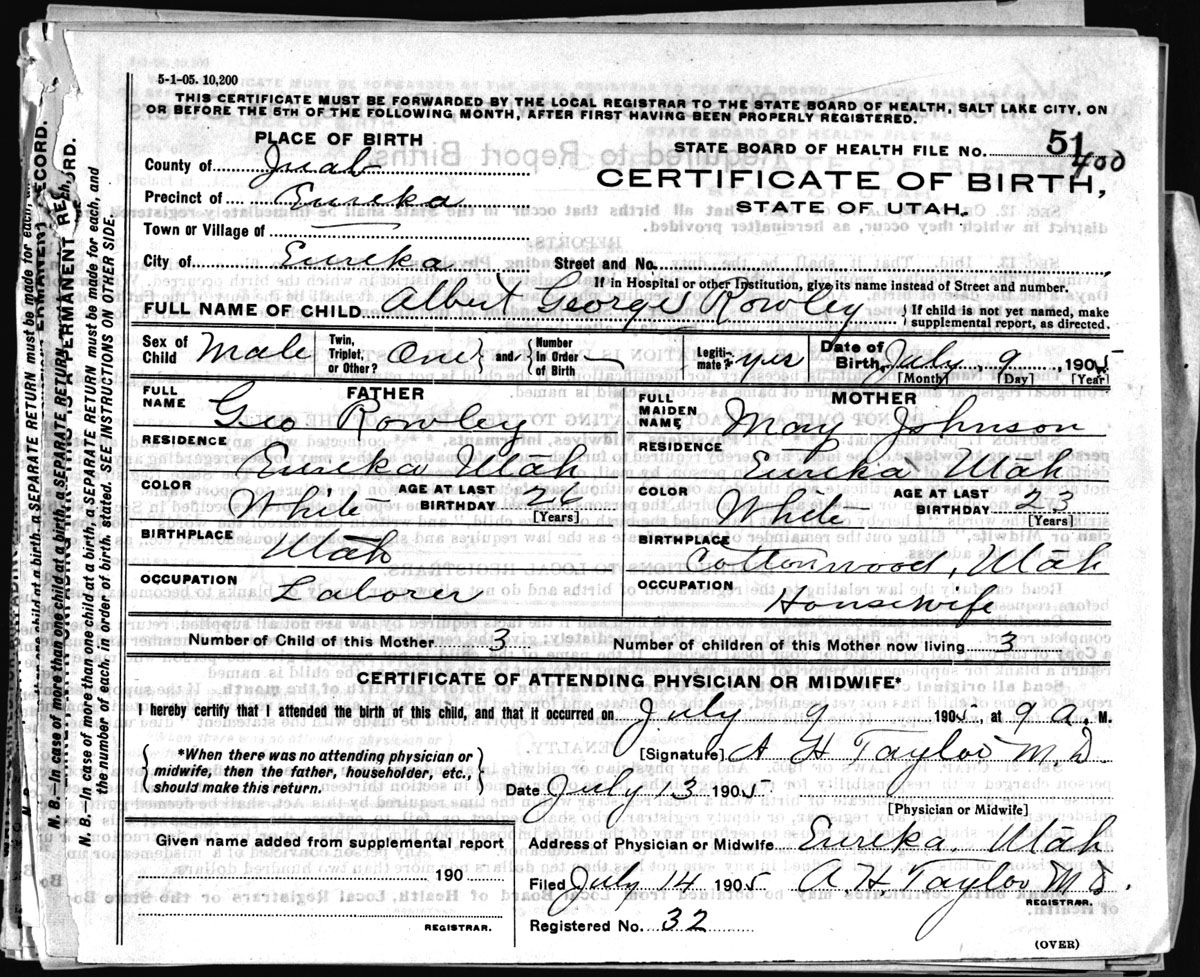 5-1-05. 10,200
THIS CERTIFICATE MUST BE FORWARDED BY THE LOCAL REGISTRAR TO THE STATE BOARD OF HEALTH, SALT LAKE CITY, ON
OR BEFORE THE 5TH OF THE FOLLOWING MONTH, AFTER FIRST HAVING BEEN PROPERLY REGISTERED.
PLACE OF BIRTH
STATE BOARD OF HEALTH FILE No. 51
400
County of Juab
CERTIFICATE OF BIRTH,
Precinct of Eureka
STATE OF UTAH.
Town or Village of
City of Eureka Street and No.
If in Hospital or other Institution, give its name instead of Street and number.
FULL NAME OF CHILD Albert George Rowley { If child is not yet named, make supplemental report, as directed.
Sex of Child Male Twin, Triplet, or Other? One } and { Number in Order of Birth — Legitimate? yes Date of Birth July 9 1905
[Month] [Day] [Year]
FATHER
FULL NAME Geo Rowley
RESIDENCE
Eureka Utah
COLOR White AGE AT LAST BIRTHDAY 26
[Years]
BIRTHPLACE
Utah
OCCUPATION
Laborer
MOTHER
FULL MAIDEN NAME May Johnson
RESIDENCE
Eureka Utah
COLOR White AGE AT LAST BIRTHDAY 23
[Years]
BIRTHPLACE
Cottonwood, Utah
OCCUPATION
Housewife
Number of Child of this Mother 3 Number of children of this Mother now living 3
CERTIFICATE OF ATTENDING PHYSICIAN OR MIDWIFE*
I hereby certify that I attended the birth of this child, and that it occurred on July 9 1905, at 9 a. M.
{ *When there was no attending physician or
midwife, then the father, householder, etc.,
should make this return. }
[Signature] A H Taylor M.D.
Date July 13 1905
[Physician or Midwife]
Given name added from supplemental report
190
REGISTRAR.
Address of Physician or Midwife Eureka, Utah
Filed July 14 1905 A. H. Taylor M D.
REGISTRAR.
Registered No. 32
(OVER)
N. B.—In case of more than one child at a birth, a SEPARATE RETURN must be made for each, and
the number of each, in order of birth, stated. SEE INSTRUCTIONS ON OTHER SIDE.